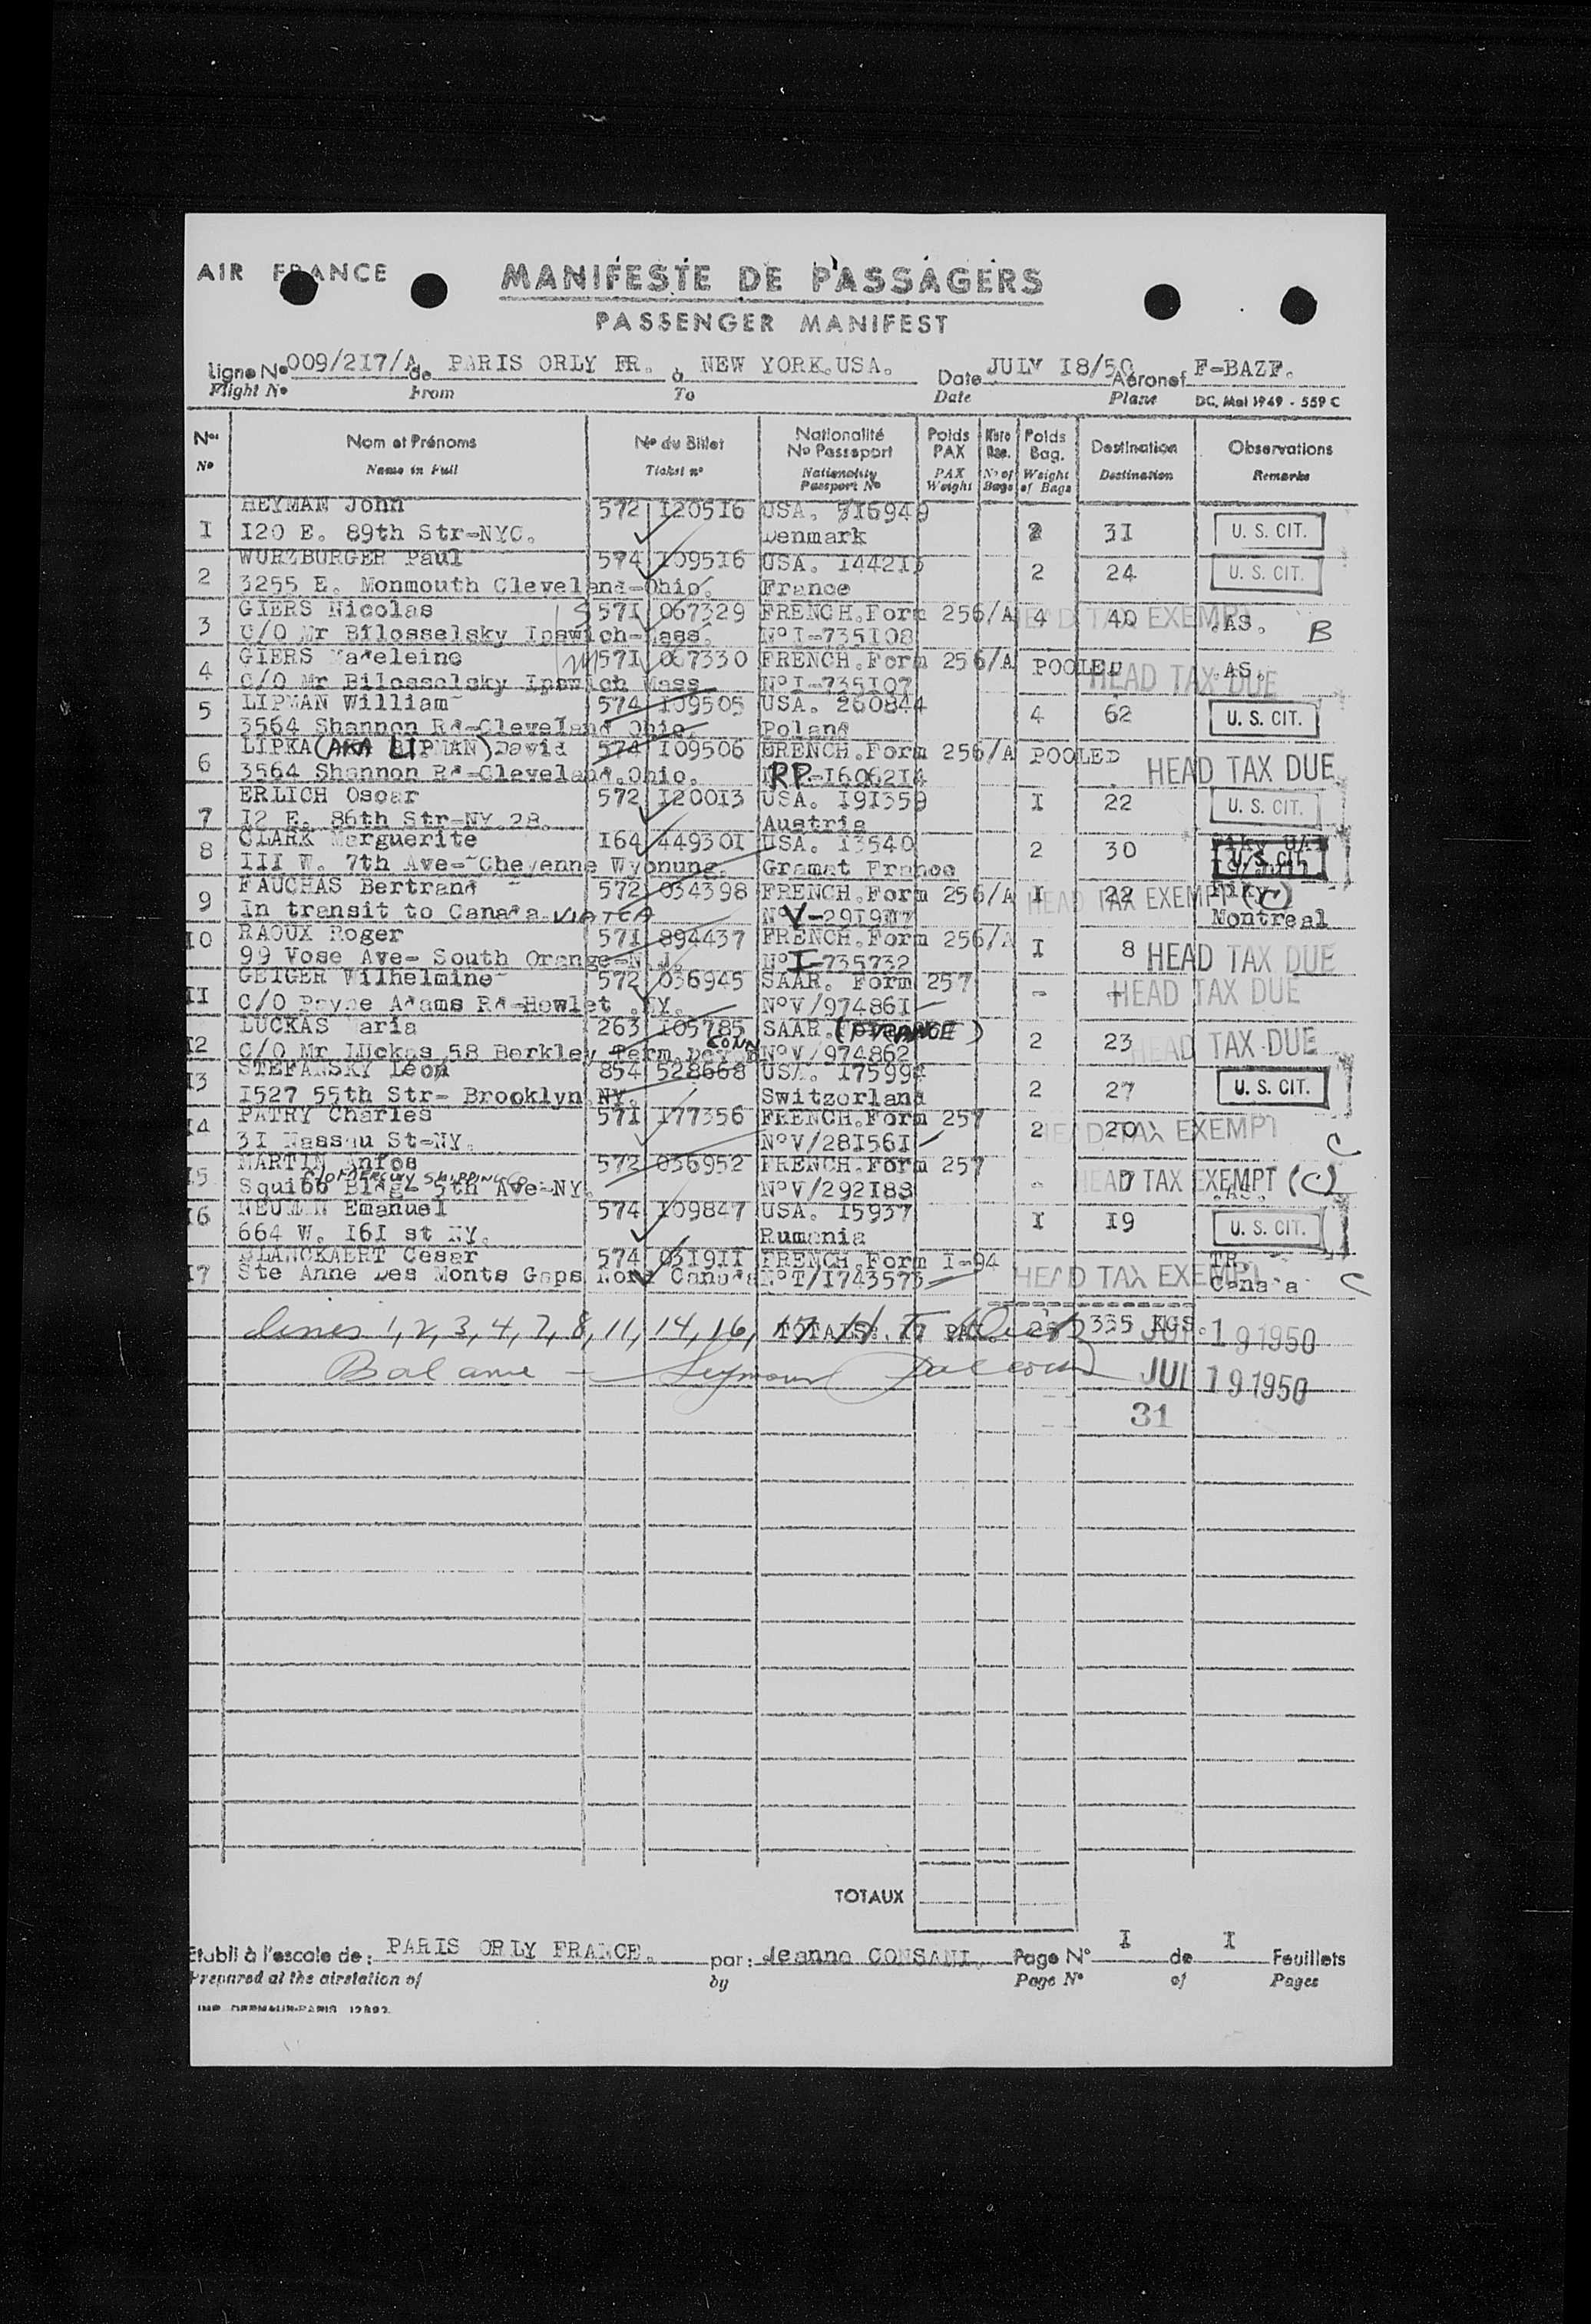 AIR FRANCE
MANIFESTE DE PASSAGERS
PASSENGER MANIFEST
Ligne No 009/217/A de PARIS ORLY FR. à NEW YORK.USA. Date JULY 18/50 Aéronef F-BAZF.
Flight No From To Date Plane DC. Mai 1949 - 559 C
Nos Nom et Prénoms No du Billet Nationalité No Passeport Poids PAX Nbre Bag. Poids Bag. Destination Observations
No Name in Full Ticket no Nationality Passport No PAX Weight No of Bags Weight of Bags Destination Remarks
HEYMAN John 572 120516 USA. 316949
1 120 E. 89th Str-NYC. Denmark 2 31 U. S. CIT.
WURZBURGER Paul 574 109516 USA. 144213
2 3255 E. Monmouth Cleveland-Ohio. France 2 24 U. S. CIT.
GIERS Nicolas S 571 067329 FRENCH.Form 256/A 4 40 HEAD TAX EXEMPT
3 C/O Mr Bilosselsky Ipswich-Mass. No I-735108 .AS. B
GIERS Madeleine M 571 067330 FRENCH.Form 256/A POOLED .AS.
4 C/O Mr Bilosselsky Ipswich Mass No I-735107 HEAD TAX DUE
LIPMAN William 574 109505 USA. 260844
5 3564 Shannon Rd-Cleveland Ohio. Poland 4 62 U. S. CIT.
LIPKA (AKA LIPMAN) David 574 109506 FRENCH.Form 256/A POOLED
6 3564 Shannon Rd-Cleveland.Ohio. RP-1606214 HEAD TAX DUE
ERLICH Oscar 572 120013 USA. 191359 1 22 U. S. CIT.
7 12 E. 86th Str-NY.28. Austria
CLARK Marguerite 164 449301 USA. 13540
8 111 W. 7th Ave- Cheyenne Wyonung. Gramat France 2 30 U. S. CIT.
FAUCHAS Bertrand 572 034398 FRENCH.Form 256/A 1 22 HEAD TAX EXEMPT (C)
9 In transit to Canada VIA TCA No V-291977 Montreal
RAOUX Roger 571 894437 FRENCH.Form 256/A
10 99 Vose Ave- South Orange-N.J. No I-735732 1 8 HEAD TAX DUE
GEIGER Wilhelmine 572 036945 SAAR. Form 257
11 C/O Payne Adams Rd-Howlet .NY. No V/974861 - - HEAD TAX DUE
LUCKAS Maria 263 105785 SAAR. (FRANCE)
12 C/O Mr Luckas 58 Berkley Term. CONN No V/974862 2 23 HEAD TAX DUE
STEFANSKY Léon 854 528668 USA. 175994
13 1527 55th Str- Brooklyn NY. Switzerland 2 27 U. S. CIT.
PATRY Charles 571 177356 FRENCH.Form 257
14 31 Nassau St-NY. No V/281561 2 20 HEAD TAX EXEMPT C
MARTIN Anfos 572 036952 FRENCH.Form 257
C/O MERCURY SHIPPING CO
15 Squibb Bldg- 5th Ave-NY. No V/292188 - 7 HEAD TAX EXEMPT (C)
.AS.
NEUMAN Emanuel 574 109847 USA. 15937
16 664 W. 161 st NY. Rumania 1 19 U. S. CIT.
BLANCKAERT Cesar 574 031911 FRENCH.Form I-94 TR.
17 Ste Anne Des Monts Gaps Nord Canada No T/1743573 HEAD TAX EXEMPT Canada C
Lines 1, 2, 3, 4, 7, 8, 11, 14, 16, 17 TOTALS. 17 PAX. 335 KGS. JUL 19 1950
Balance - Seymour JUL 19 1950
31
TOTAUX
Etabli à l'escale de: PARIS ORLY FRANCE. par: Jeanne CONSANI. Page No 1 de 1 Feuillets
Prepared at the airstation of by Page No of Pages